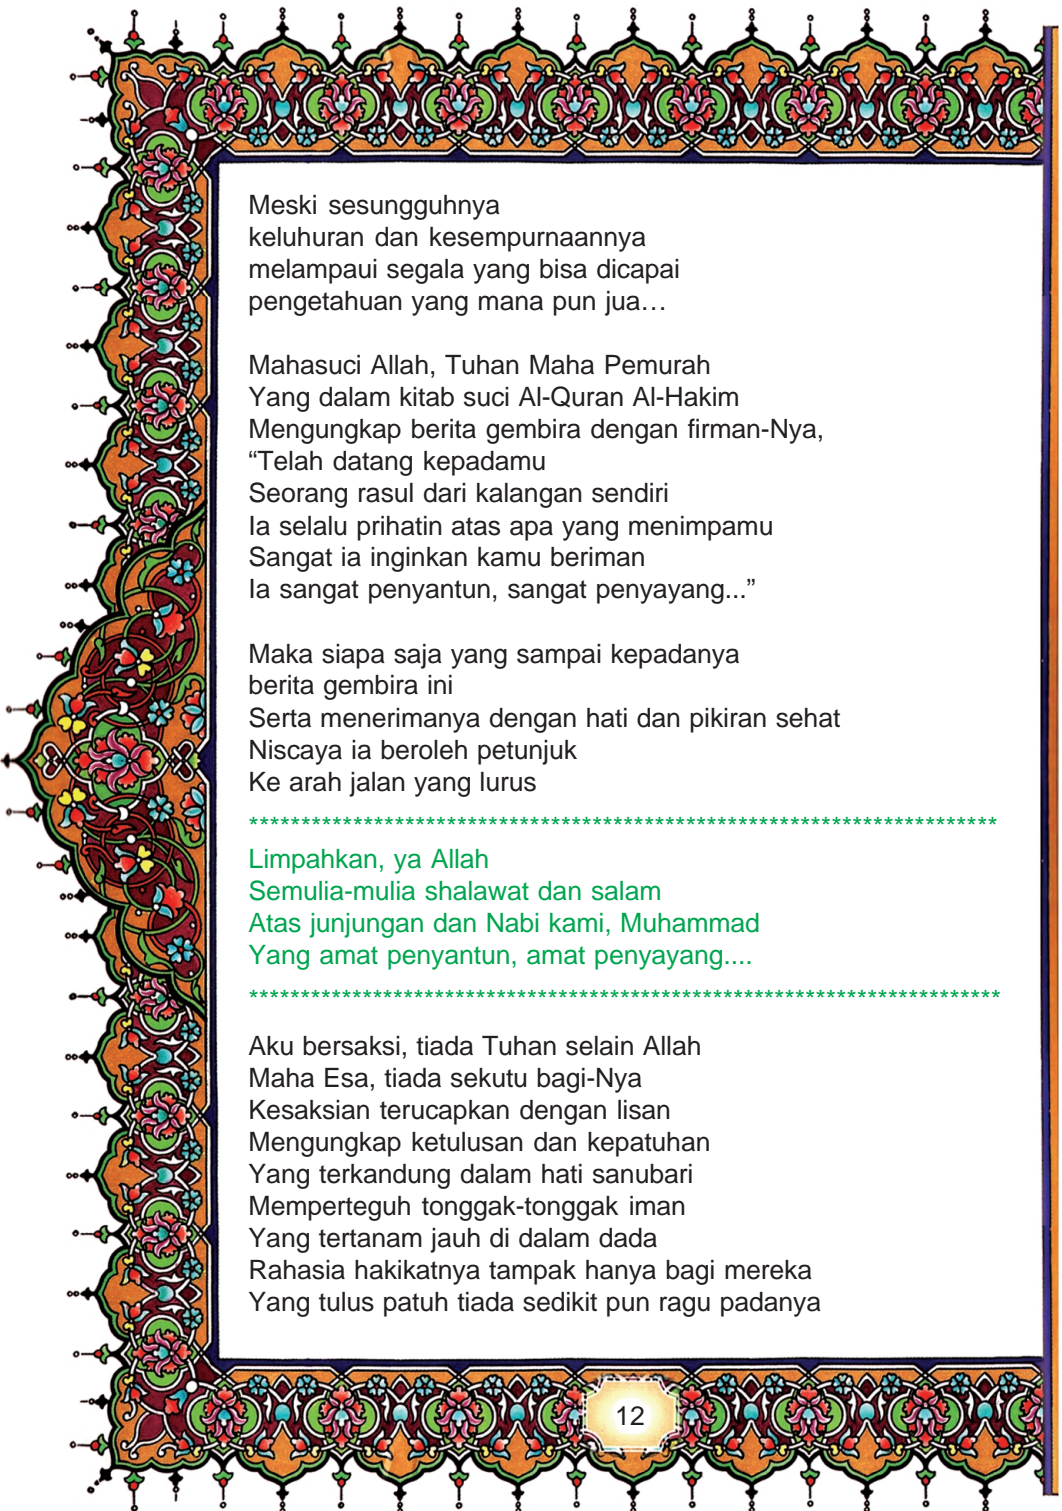 Meski sesungguhnya
keluhuran dan kesempurnaannya
melampaui segala yang bisa dicapai
pengetahuan yang mana pun jua…

Mahasuci Allah, Tuhan Maha Pemurah
Yang dalam kitab suci Al-Quran Al-Hakim
Mengungkap berita gembira dengan firman-Nya,
“Telah datang kepadamu
Seorang rasul dari kalangan sendiri
Ia selalu prihatin atas apa yang menimpamu
Sangat ia inginkan kamu beriman
Ia sangat penyantun, sangat penyayang...”

Maka siapa saja yang sampai kepadanya
berita gembira ini
Serta menerimanya dengan hati dan pikiran sehat
Niscaya ia beroleh petunjuk
Ke arah jalan yang lurus
************************************************************************
Limpahkan, ya Allah
Semulia-mulia shalawat dan salam
Atas junjungan dan Nabi kami, Muhammad
Yang amat penyantun, amat penyayang....
************************************************************************
Aku bersaksi, tiada Tuhan selain Allah
Maha Esa, tiada sekutu bagi-Nya
Kesaksian terucapkan dengan lisan
Mengungkap ketulusan dan kepatuhan
Yang terkandung dalam hati sanubari
Memperteguh tonggak-tonggak iman
Yang tertanam jauh di dalam dada
Rahasia hakikatnya tampak hanya bagi mereka
Yang tulus patuh tiada sedikit pun ragu padanya
12